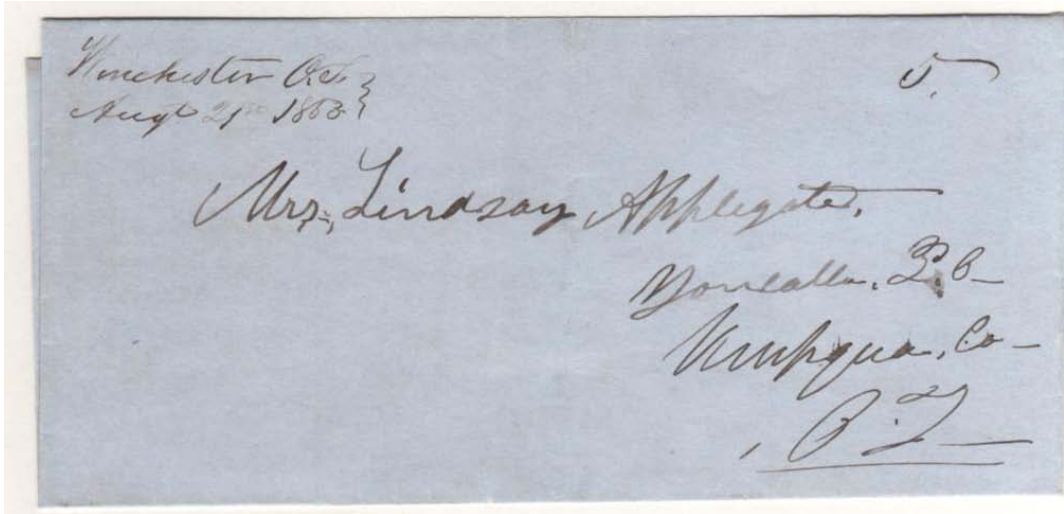 Winchester O.T.
Augt 21st 1853
5.
Mrs. Lindsay Applegate.
Yoncalla. P. O
Umpqua. Co
O. T